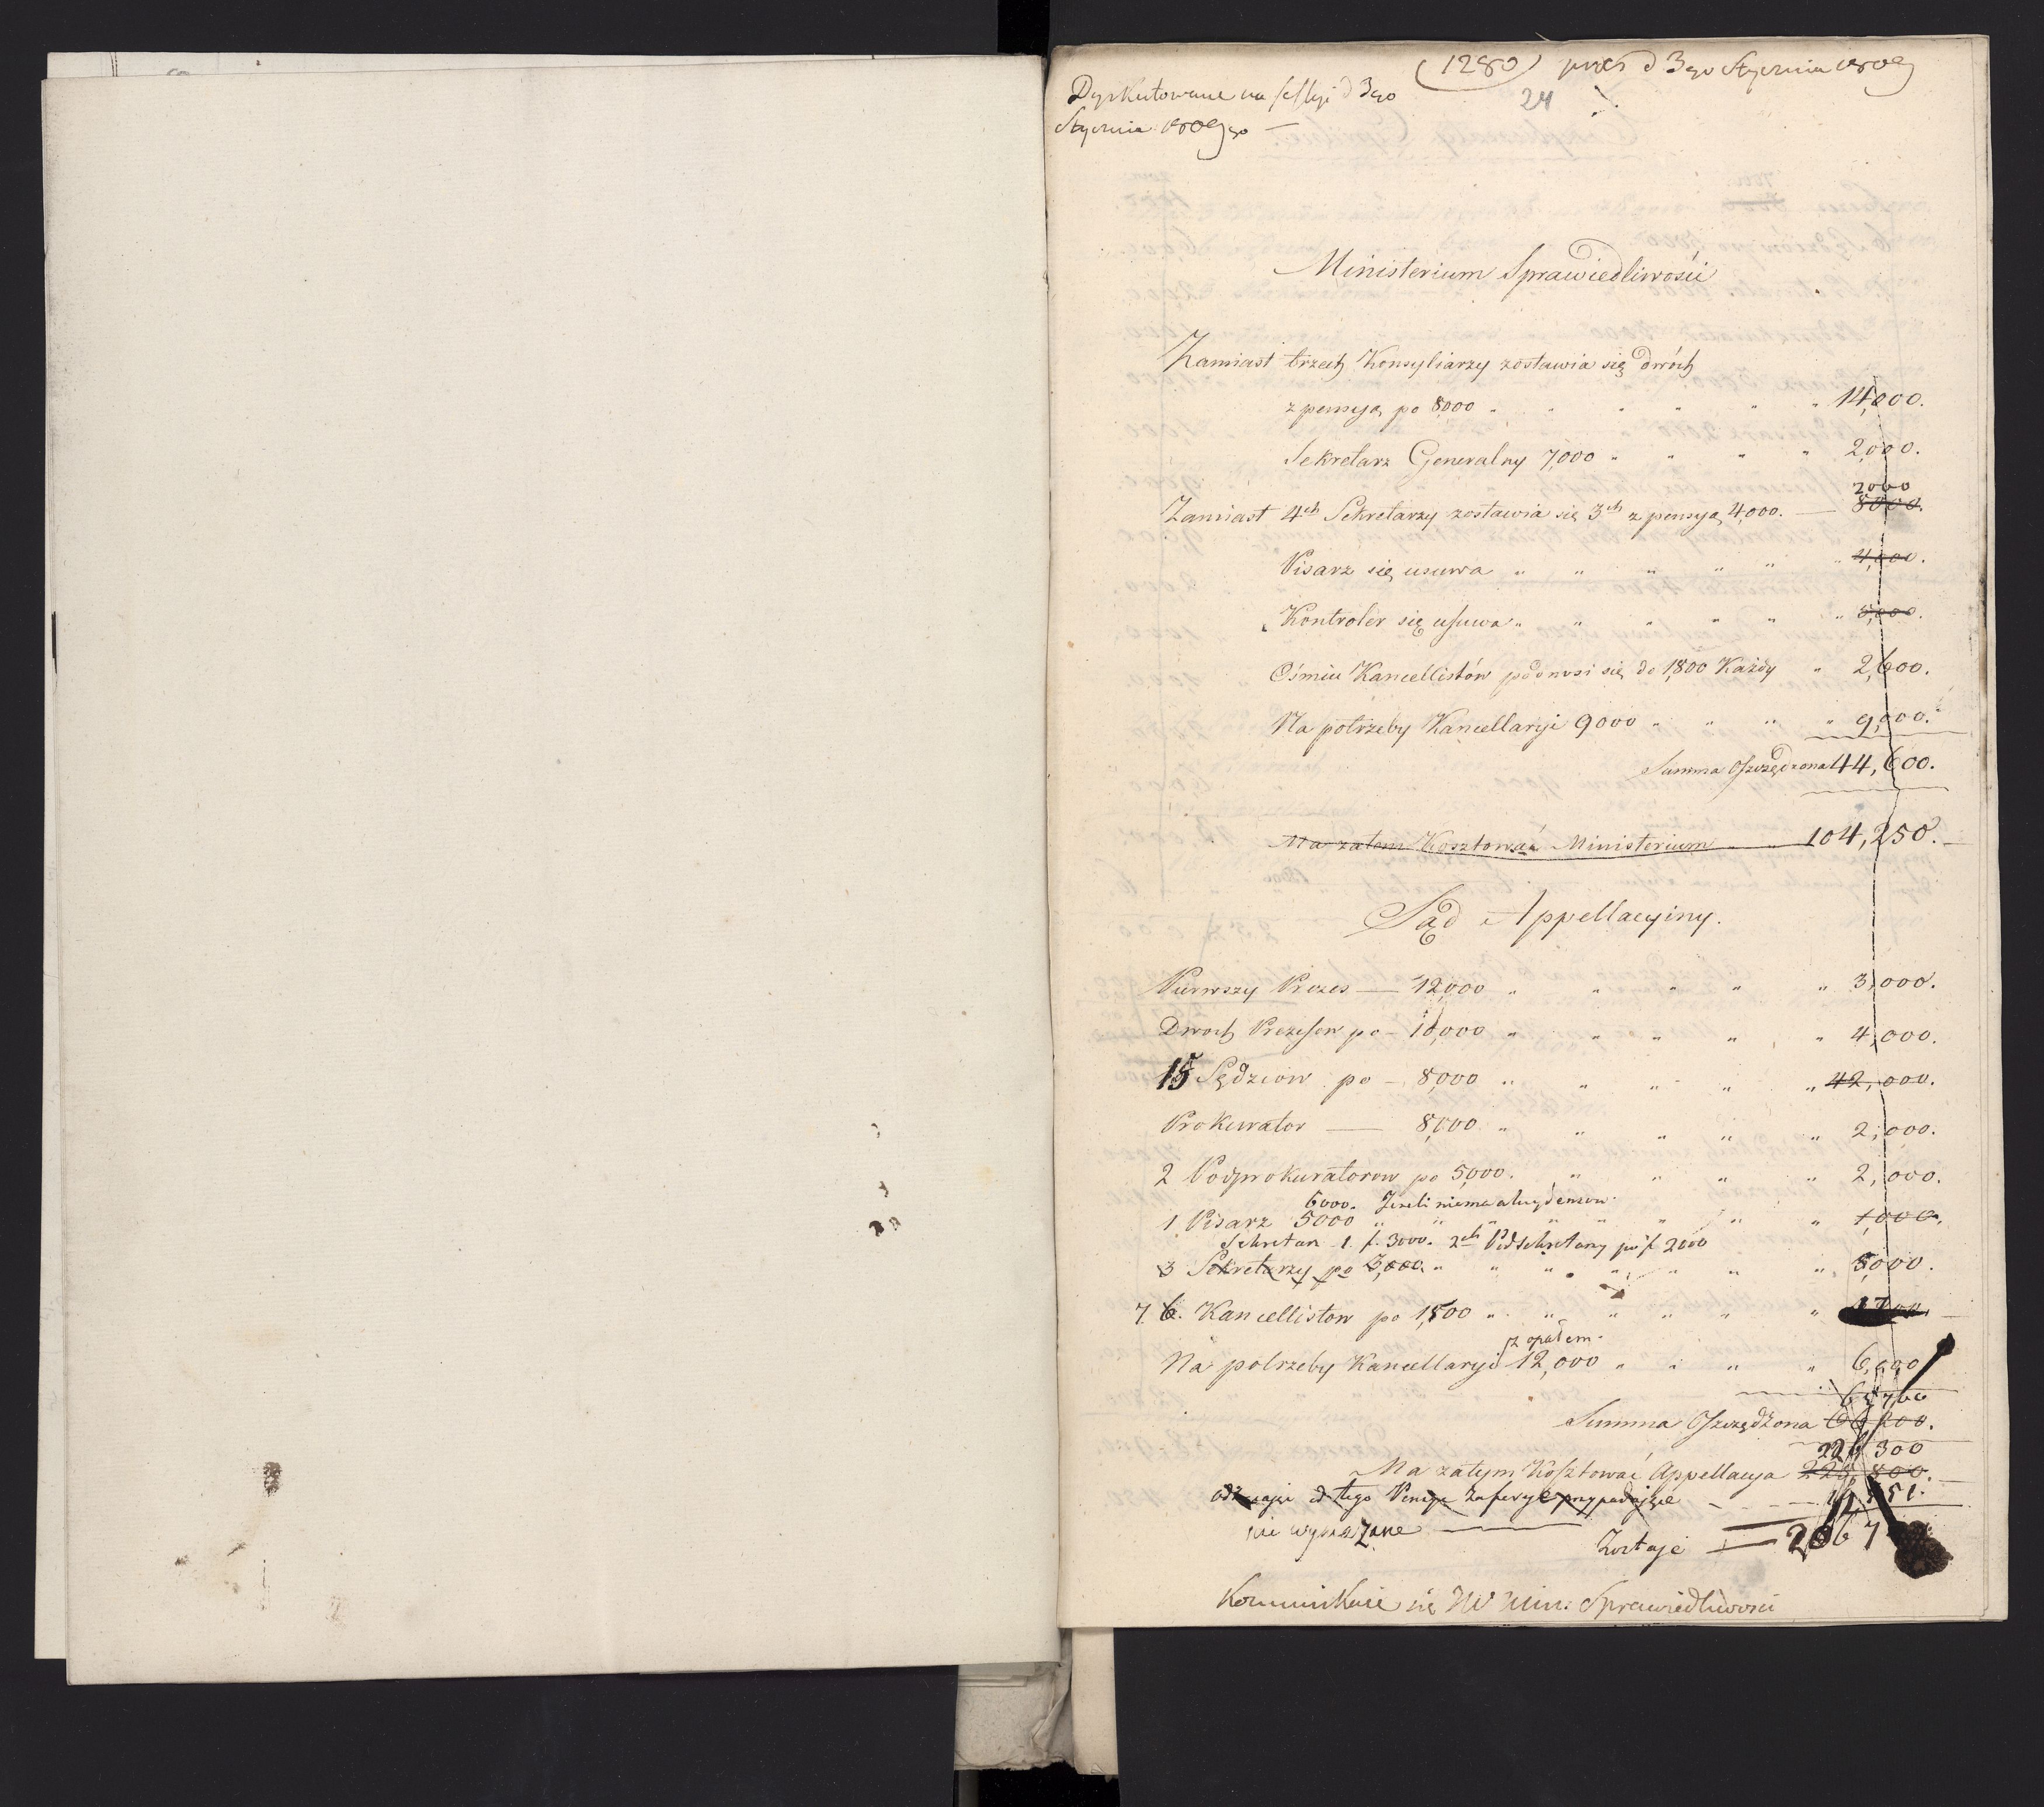 (1280) d 3go Stycznia 1809
Dyskutowane na sessyi d 3go
24
Stycznia 1809go —
Ministerium Sprawiedliwości
Zamiast trzech Konsyliarzy zostawia się dwóch
z pensyą po 8,000 " " " " " " 14,000.
Sekretarz Generalny 7,000 " " " " 2,000.
2000
Zamiast 4ch Sekretarzy zostawia się 3ch z pensyą 4,000. — 8000.
Pisarz się usuwa " " " " " " 4,000.
Kontroler się usuwa " " " " " "
Ośmiu Kancellistów podnosi się do 1,800 Każdy " 2,600.
Na potrzeby Kancellaryi 9000 " " " " 9,000.
Summa Oszczędzona 44,600.
Ma zatem Kosztować Ministerium " " 104,250.
Sąd Appellacyiny.
Pierwszy Prezes — 12,000 " " " " " 3,000.
Dwoch Prezesow po — 10,000 " " " " " 4,000.
15 Sędziow po — 8,000 " " " " " 42,000.
Prokurator — 8,000 " " " " " 2,000.
2 Podprokuratorow po 5,000. " " " " " 2,000.
6000. Jeżeli niema
1 Pisarz 5000 " " " " " " " " 1,000.
Sekretarz 1. f. 3000. 2ch Podsekretarzy po f 2000
3 Sekretarzy po 3,000. " " " " " " " 5,000.
7 6. Kancellistow po 1,500 " " " " " "
z opałem.
Na potrzeby Kancellaryi 12,000 " " " " 6,000
Summa Oszczędzona
300
Ma zatym Kosztować Appellacya
od tego Pensye
nie wyrażone — Zostaje —
Kommunikuie się JW Min: Sprawiedliwości